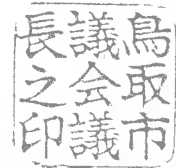 鳥取市
議会議
長之印